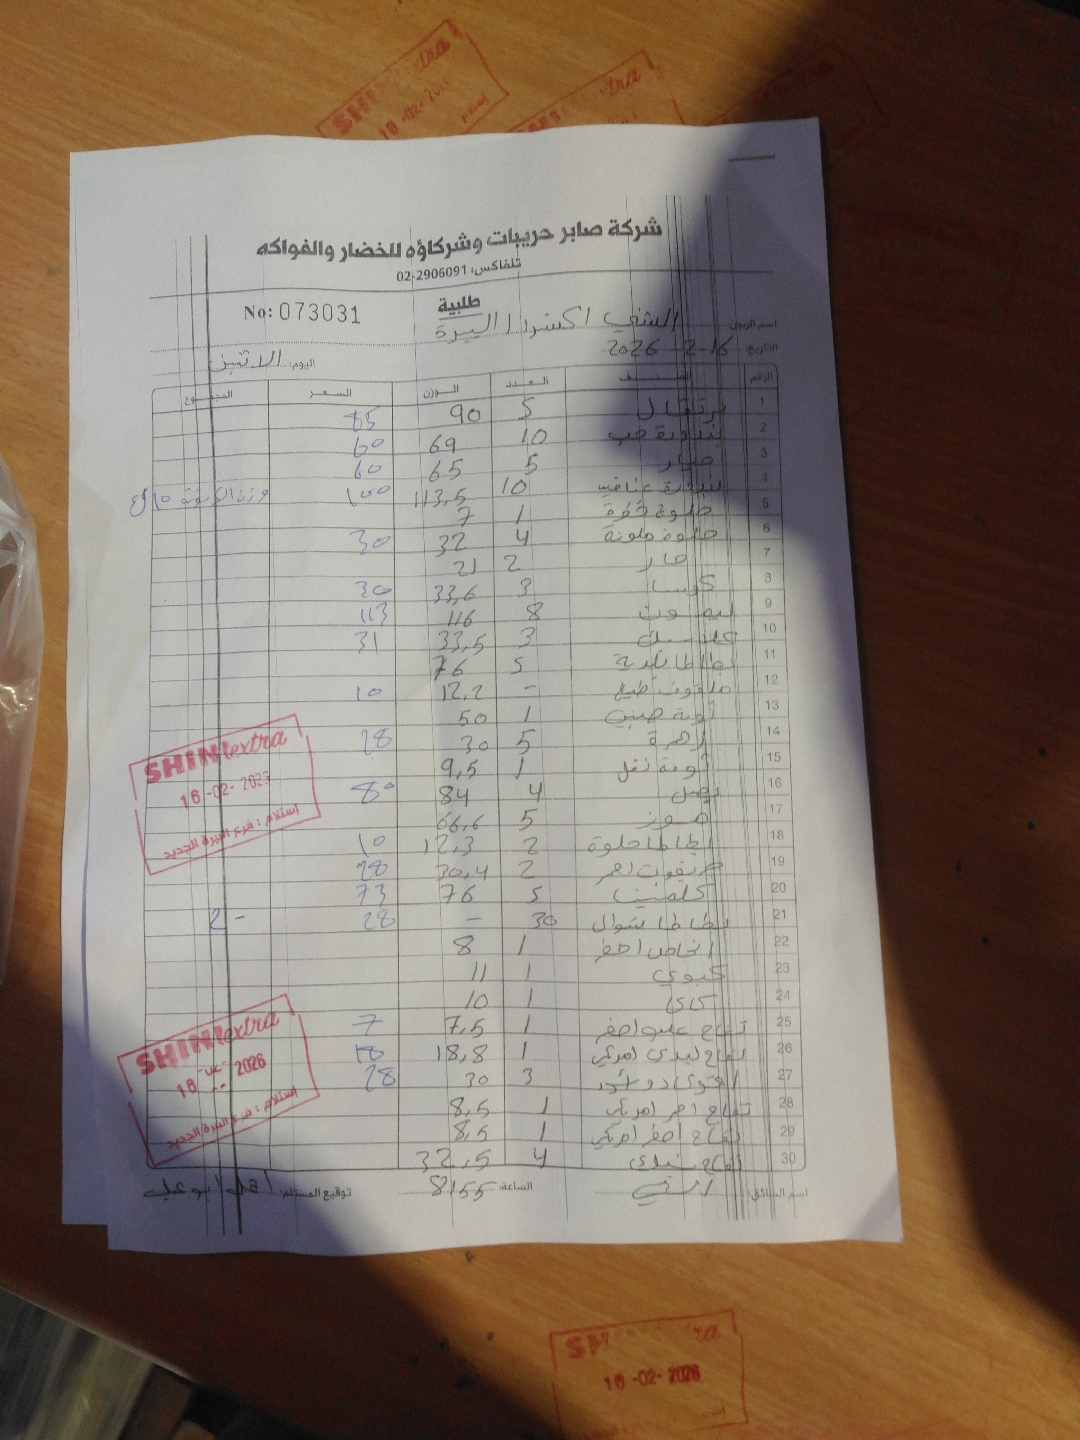 SHINI extra
18 -02- 202
شركة صابر حريبات وشركاؤه للخضار والفواكه
تلفاكس: 02-2906091
طلبية
No: 073031
اسم الزبون: الشني اكسترا البيرة
التاريخ: 16-2-2026
اليوم: الاثنين
الرقم الصنف العدد الوزن السعر المجموع
1 برتقال 5 90 85
2 بندورة حب 10 69 60
3 خيار 5 65 60
4 بندورة عناقيد 10 113,5 100
5 1 7
6 حلوة ملونة 4 32 30
7 حار 2 21
8 كوسا 3 33,6 30
9 ليمون 8 116 113
10 3 33,5 31
11 بطاطا بلدية 5 76
12 ملفوف - 12,2 10
13 1 50
14 زهرة 5 30 28
15 ثومة نفل 1 9,5
16 بصل 4 84 80
17 موز 5 66,6
18 بطاطا حلوة 2 12,3 10
19 جريفوت احمر 2 30,4 28
20 كلمنتينا 5 76 73
21 بطاطا شوال 30 - 28 2 -
22 اصفر 1 8
23 كيوي 1 11
24 كاكا 1 10
25 تفاح اصفر 1 7,5 7
26 تفاح ليدي امريكي 1 18,8 18
27 افوكادو 3 30 28
28 تفاح احمر امريكي 1 8,5
29 تفاح اصفر امريكي 1 8,5
30 تفاح 4 32,5
SHINI extra
18 -02- 2026
استلام : فرع البيرة الجديد
SHINI extra
18 2026
استلام : فرع البيرة الجديد
اسم السائق: الساعة: 8:55 توقيع المستلم:
18 -02- 2026